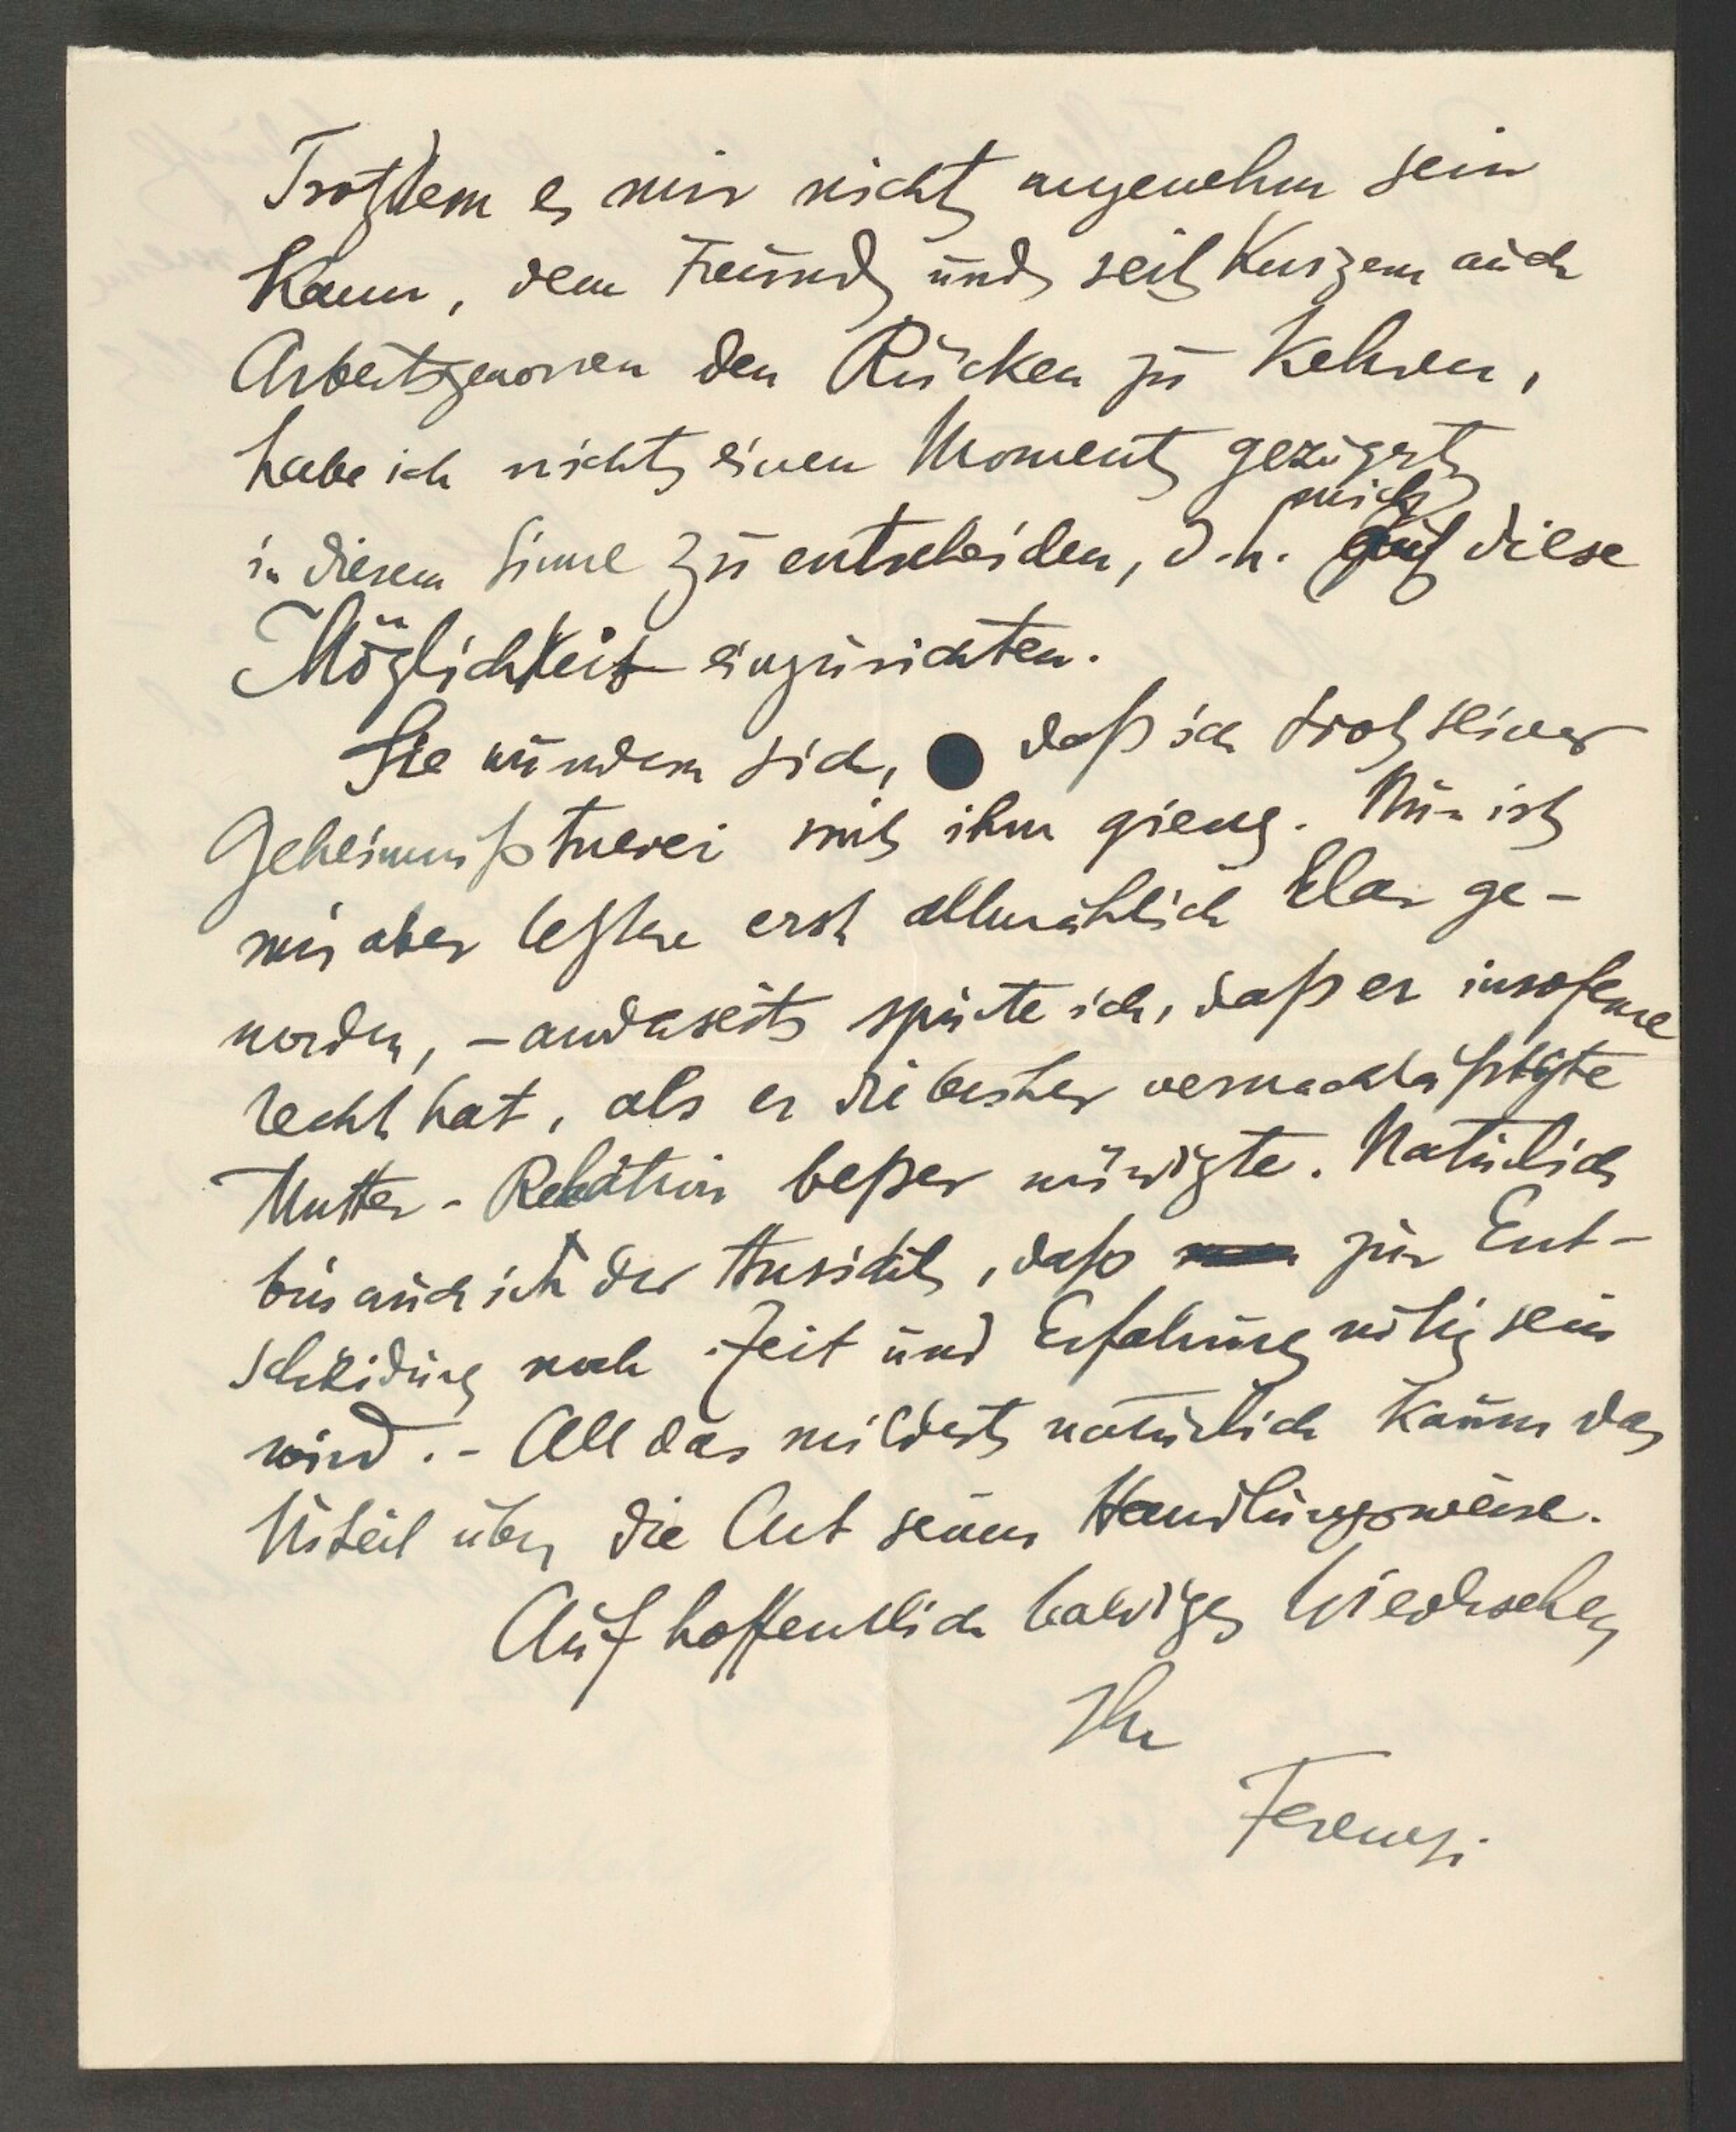 Trotzdem es mir nicht angenehm sein
kann, dem Freund und seit Kurzem auch
Arbeitsgenossen den Rücken zu kehren,
habe ich nicht einen Moment gezögert
mich
in diesem Sinne zu entscheiden, d.h. auf diese
Möglichkeit einzurichten.
Sie wundern sich, daß ich trotz seiner
Geheimnißtuerei mit ihm gieng. Nun ist
mir aber letztere erst allmählich klar ge-
worden, – anderseits spürte ich, daß er insoferne
recht hat, als er die bisher vernachläßigte
Mutter-Relation beßer würdigte. Natürlich
bin auch ich der Ansicht, daß zur Ent-
scheidung noch Zeit und Erfahrung nötig sein
wird. – All das mildert natürlich kaum das
Urteil über die Art seiner Handlungsweise.
Auf hoffentlich baldiges Wiedersehen
Ihr
Ferenczi